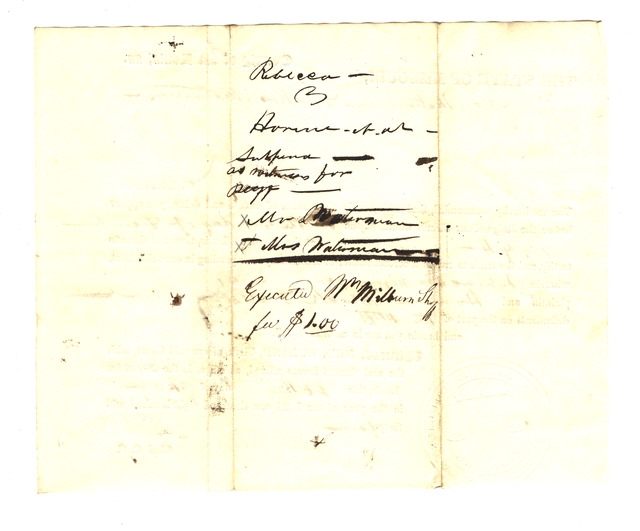 Rebecca —
vs
Horine et al —
Subpena —
as witness for
Deff —
x Mr Waterman
x Mrs Waterman
Executed Wm Milburn Shff
fee $1.00